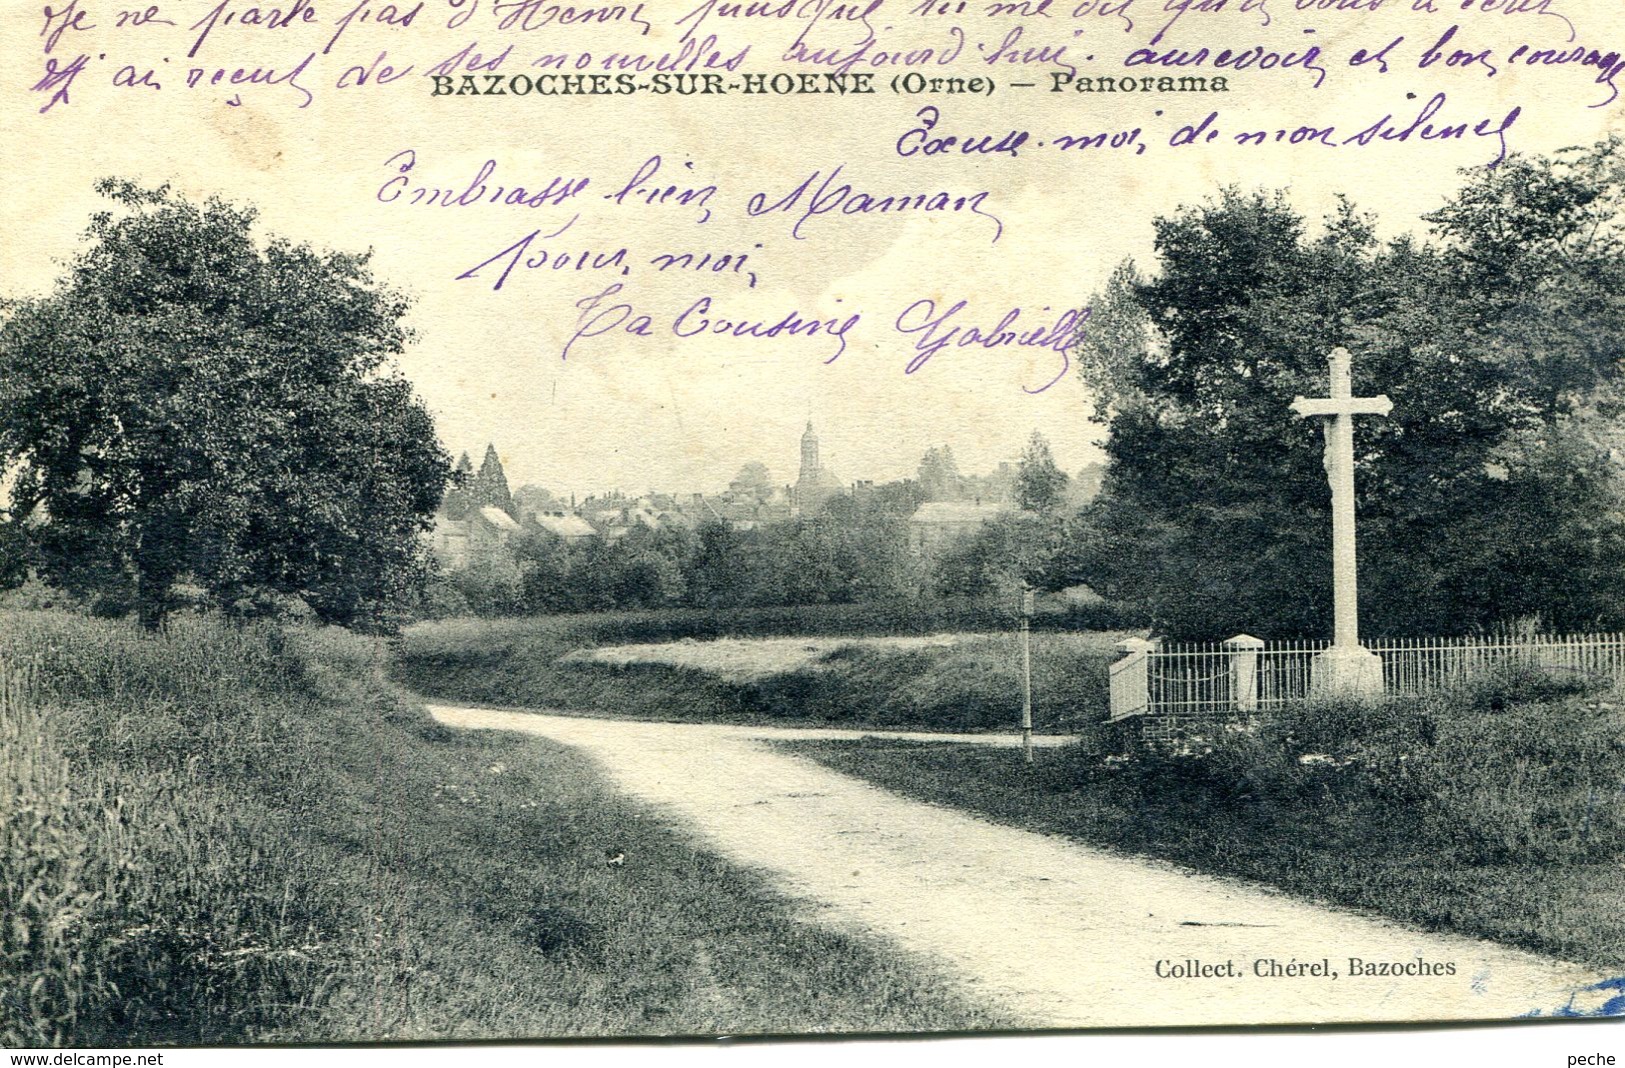 Je ne parle pas d'Henri, puisque tu me dis qu'il vous a écrit
J'ai reçut de ses nouvelles aujourd'hui. aurevoir et bon courage
BAZOCHES-SUR-HOENE (Orne) — Panorama
Excuse-moi, de mon silence
Embrasse bien Maman
pour moi,
Ta Cousine Gabrielle
Collect. Chérel, Bazoches
www.delcampe.net
peche